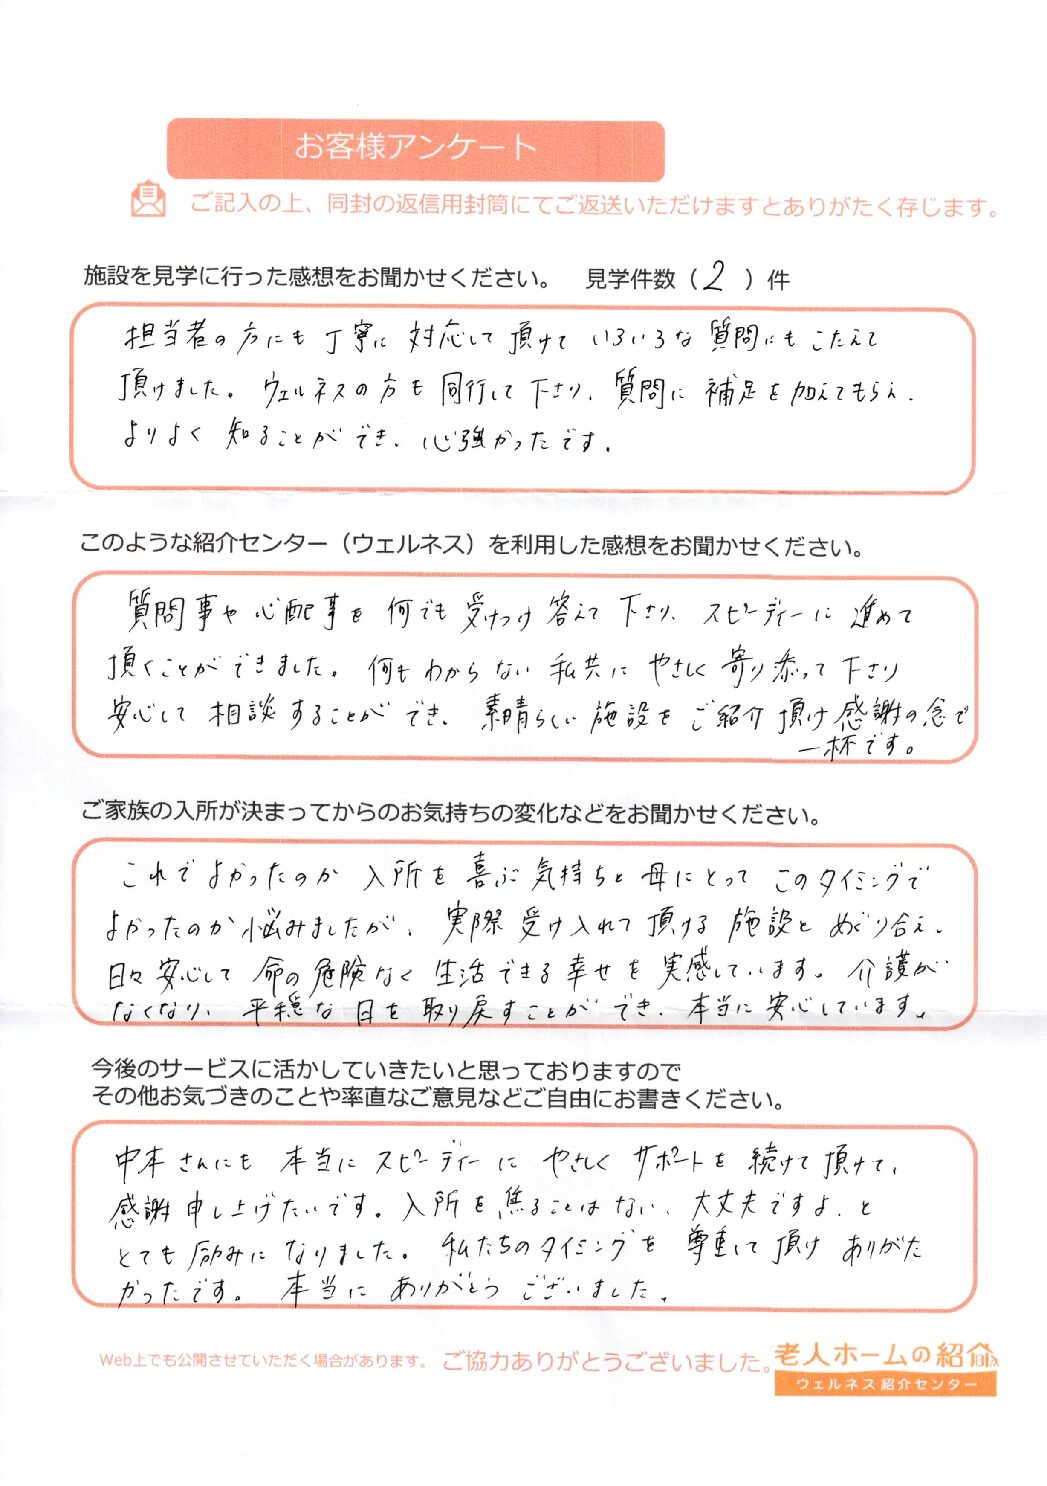 お客様アンケート
ご記入の上、同封の返信用封筒にてご返送いただけますとありがたく存じます。
施設を見学に行った感想をお聞かせください。 見学件数（ 2 ）件
担当者の方にも丁寧に対応して頂けていろいろな質問にもこたえて
頂けました。ウェルネスの方も同行して下さり、質問に補足を加えてもらえ、
よりよく知ることができ、心強かったです。
このような紹介センター（ウェルネス）を利用した感想をお聞かせください。
質問事や心配事を何でも受けつけ答えて下さり、スピーディーに進めて
頂くことができました。何もわからない私共にやさしく寄り添って下さり
安心して相談することができ、素晴らしい施設をご紹介頂け感謝の念で
一杯です。
ご家族の入所が決まってからのお気持ちの変化などをお聞かせください。
これでよかったのか入所を喜ぶ気持ちと母にとってこのタイミングで
よかったのか悩みましたが、実際受け入れて頂ける施設とめぐり合え、
日々安心して命の危険なく生活できる幸せを実感しています。介護が
なくなり、平穏な日を取り戻すことができ、本当に安心しています。
今後のサービスに活かしていきたいと思っておりますので
その他お気づきのことや率直なご意見などご自由にお書きください。
中本さんにも本当にスピーディーにやさしくサポートを続けて頂けて、
感謝申し上げたいです。入所を焦ることはない、大丈夫ですよ、と
とても励みになりました。私たちのタイミングを尊重して頂けありがた
かったです。本当にありがとうございました。
Web上でも公開させていただく場合があります。 ご協力ありがとうございました。
老人ホームの紹介
ウェルネス紹介センター